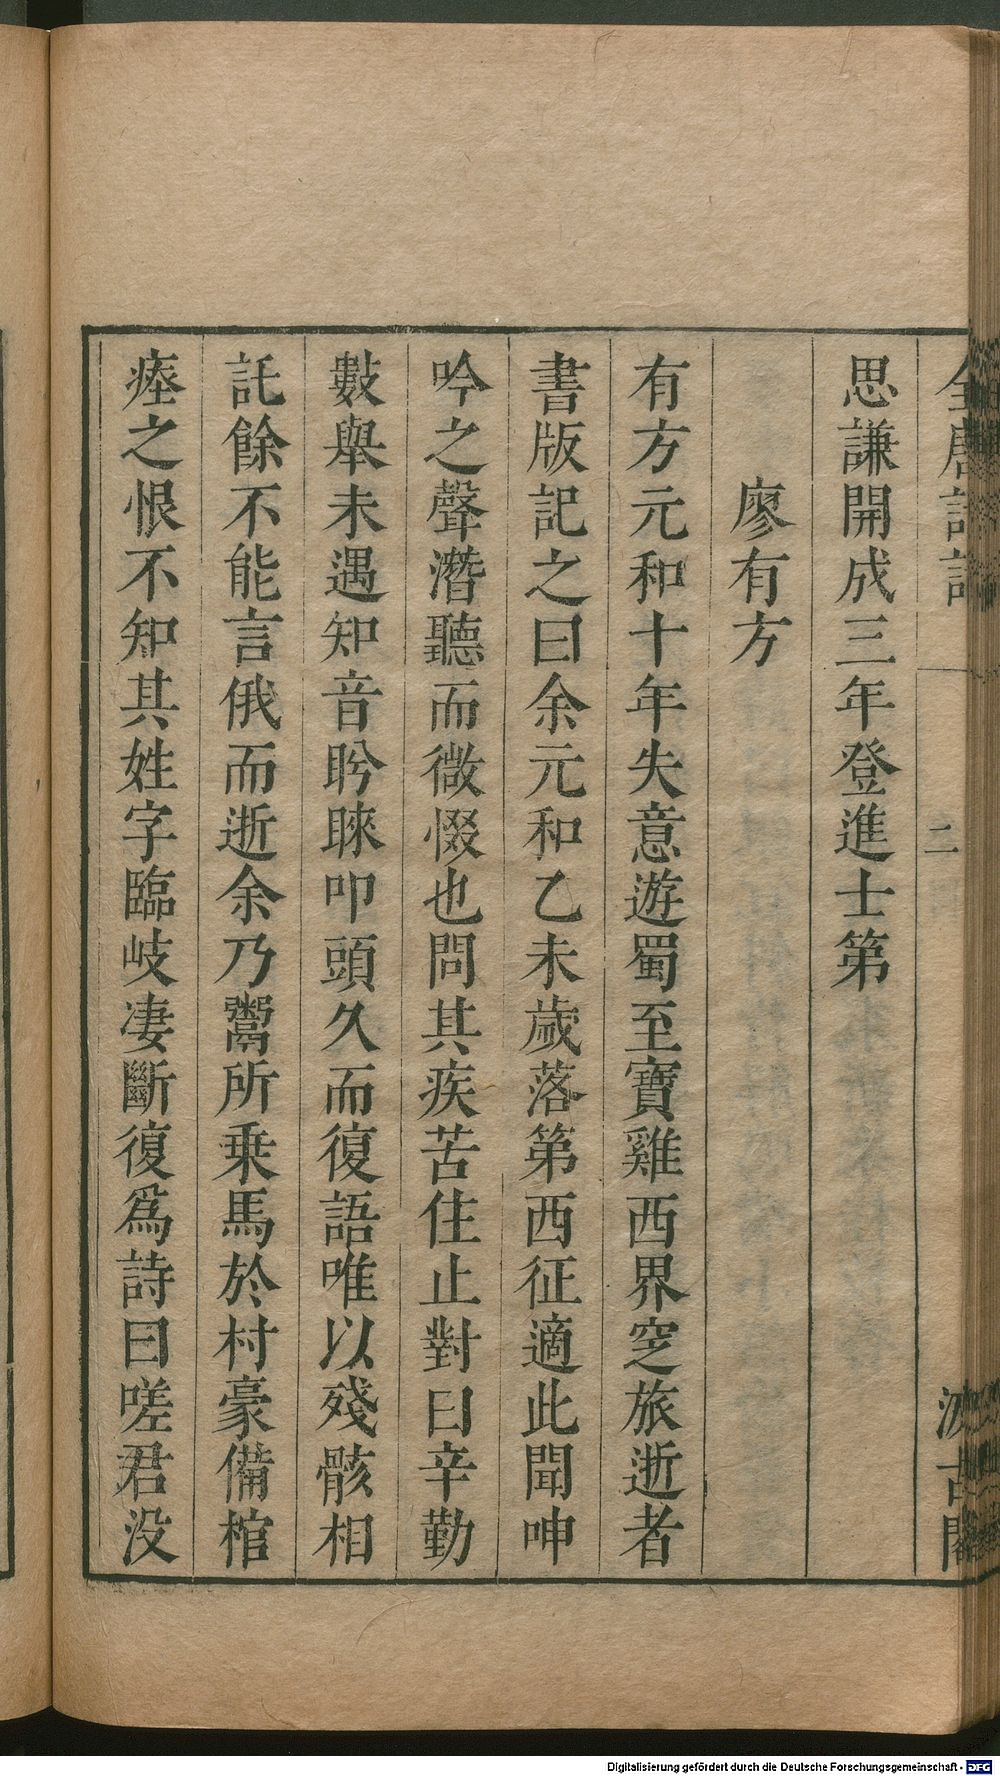 思謙開成三年登進士第
廖有方
有方元和十年失意遊蜀至寶雞西界窆旅逝者
書版記之曰余元和乙未歲落第西征適此聞呻
吟之聲潛聽而微惙也問其疾苦住止對曰辛勤
數舉未遇知音眄睞叩頭久而復語唯以殘骸相
託餘不能言俄而逝余乃鬻所乗馬於村豪備棺
瘞之恨不知其姓字臨岐凄斷復爲詩曰嗟君没
二
Digitalisierung gefördert durch die Deutsche Forschungsgemeinschaft - DFG